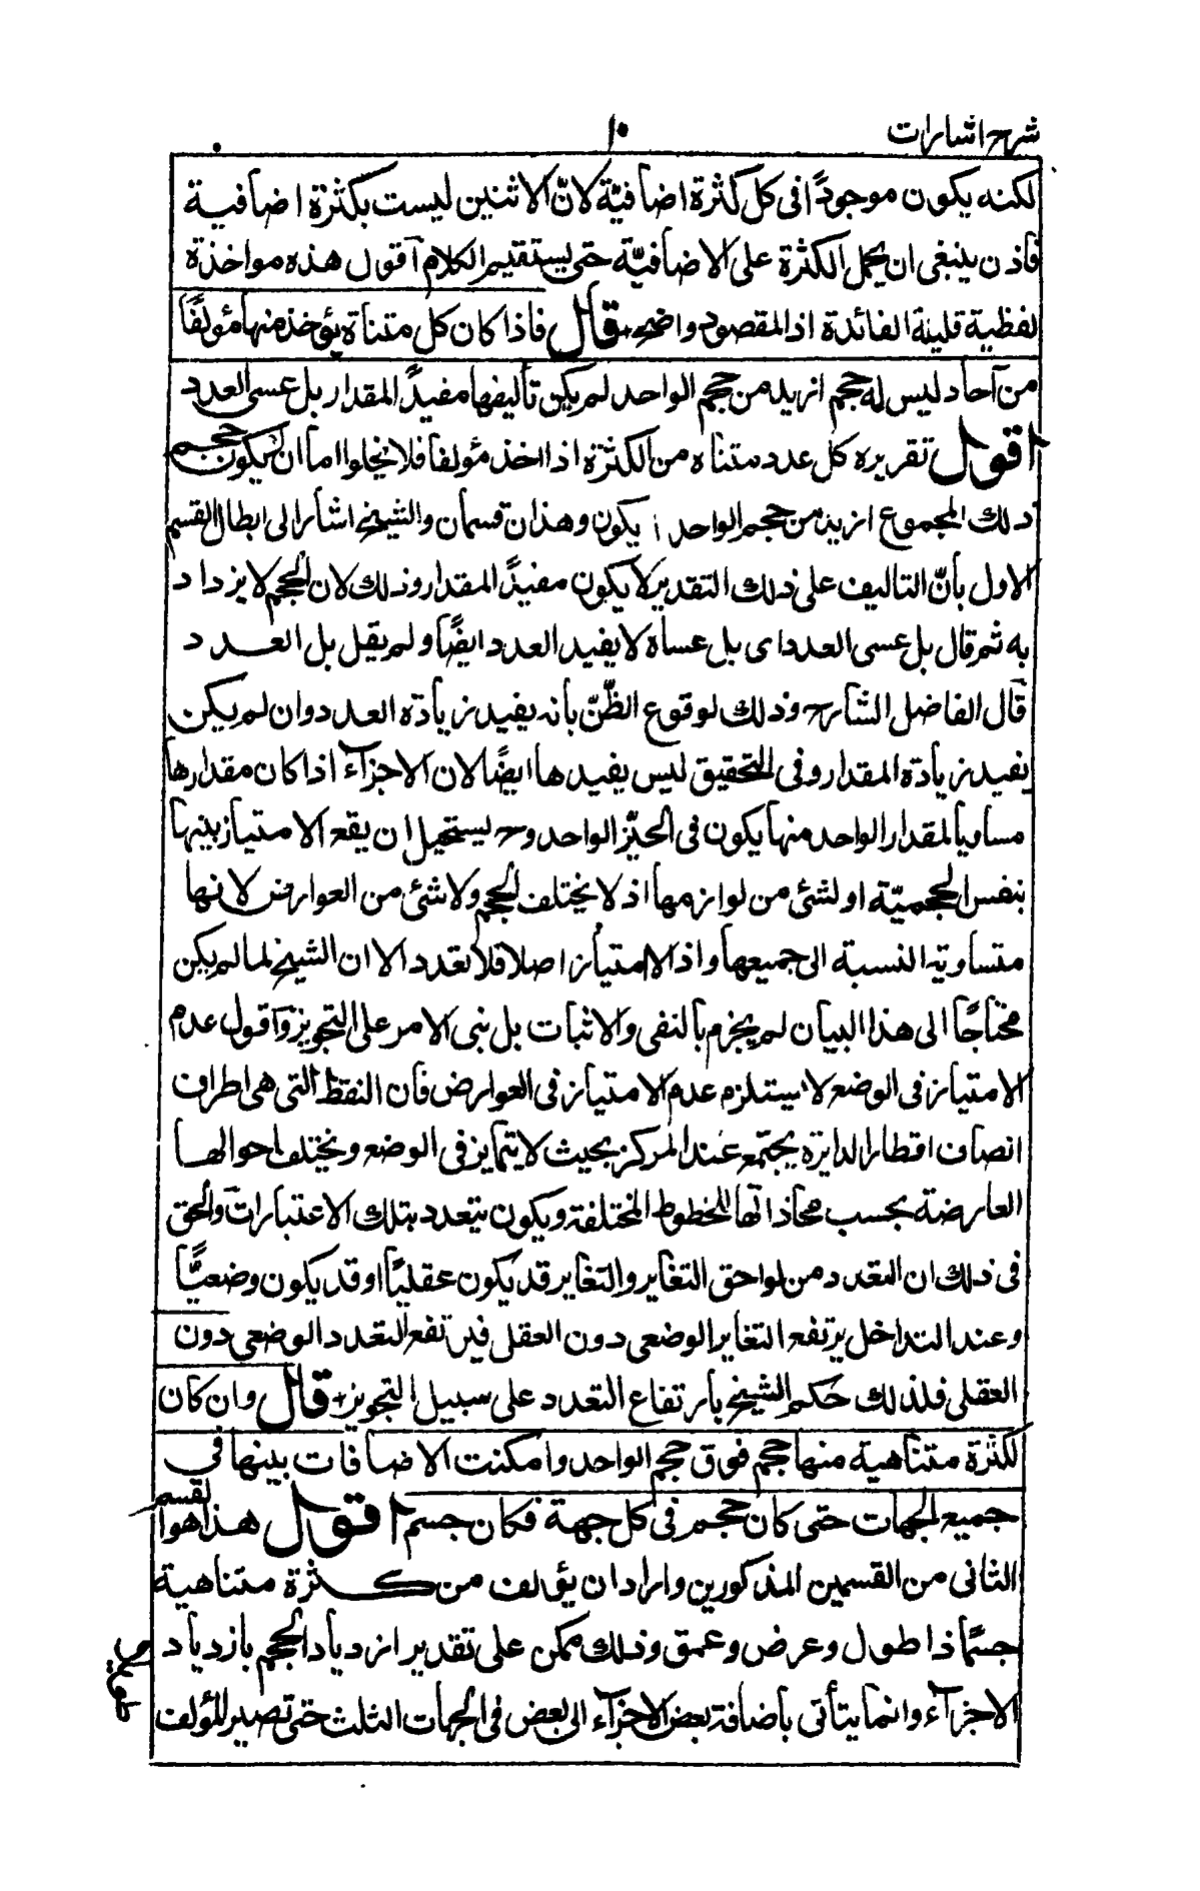 شرح اشارات
١٠
لكنه يكون موجودًا فى كل كثرة اضافيّة لانّ الاثنين ليست بكثرة اضافية
فاذن ينبغى ان يحمل الكثرة على الاضافيّة حتى يستقيم الكلام آقول هذه مواخذة
لفظية قليلة الفائدة اذ المقصود واضح قال فاذا كان كل متناة يؤخذ منها مؤلفًا
من آحاد ليس له حجم ازيد من حجم الواحد لم يكن تأليفها مفيدً المقدار بل عسى العدد
اقول تقريره كل عدد متناه من الكثرة اذا اخذ مؤلفا فلا يخلوا اما ان يكون حجم
ذلك المجموع ازيد من حجم الواحد ا يكون وهذان قسمان والشيخ اشار الى ابطال القسم
الاول بأنّ التاليف على ذلك التقدير لا يكون مفيدً المقدار وذلك لان الحجم لا يزداد
به ثم قال بل عسى العدد اى بل عساه لا يفيد العدد ايضًا ولم يقل بل العدد
قآل الفاضل الشارح وذلك لوقوع الظّنّ بأنه يفيد زيادة العدد وان لم يكن
يفيد زيادة المقدار وفى التحقيق ليس يفيدها ايضًا لان الاجزآء اذا كان مقدارها
مساويا لمقدار الواحد منها يكون فى الحيّز الواحد وح يستحيل ان يقع الامتياز بينها
بنفس الحجميّة او لشئ من لوازمها اذ لا يختلف الحجم ولا شئ من العوارض لانها
متساوية النسبة الى جميعها واذ لا امتياز اصلا فلا تعدد الا ان الشيخ لما لم يكن
محتاجًا الى هذا البيان لم يجزم بالنفى والاثبات بل بنى الامر على التجويز وآقول عدم
الامتياز فى الوضع لا يستلزم عدم الامتياز فى العوارض فان النقط التى هى اطراف
انصاف اقطار الدايرة يجتمع عند المركز بحيث لا يتمايز فى الوضع ويختلف احوالها
العارضة بحسب محاذاتها للخطوط المختلفة ويكون يتعدد بتلك الاعتبارات وآلحق
فى ذلك ان التعدد من لواحق التغاير والتغاير قد يكون عقليًا او قد يكون وضعيًّا
وعند التداخل يرتفع التغاير الوضعى دون العقلى فيرتفع التعدد الوضعى دون
العقلى فلذلك حكم الشيخ بارتفاع التعدد على سبيل التجويز قال وان كان
لكثرة متناهية منها حجم فوق حجم الواحد وامكنت الاضافات بينها فى
جميع الجهات حتى كان حجم فى كل جهة فكان جسم اقول هذا هو القسم
الثانى من القسمين المذكورين واراد ان يؤلف من كثرة متناهية
جسمًا ذا طول وعرض وعمق وذلك ممكن على تقدير ازدياد الحجم بازدياد
الاجزآء وانما يتأتى بأضافة بعض الاجزآء الى بعض فى الجهات الثلث حتى تصير المؤلف